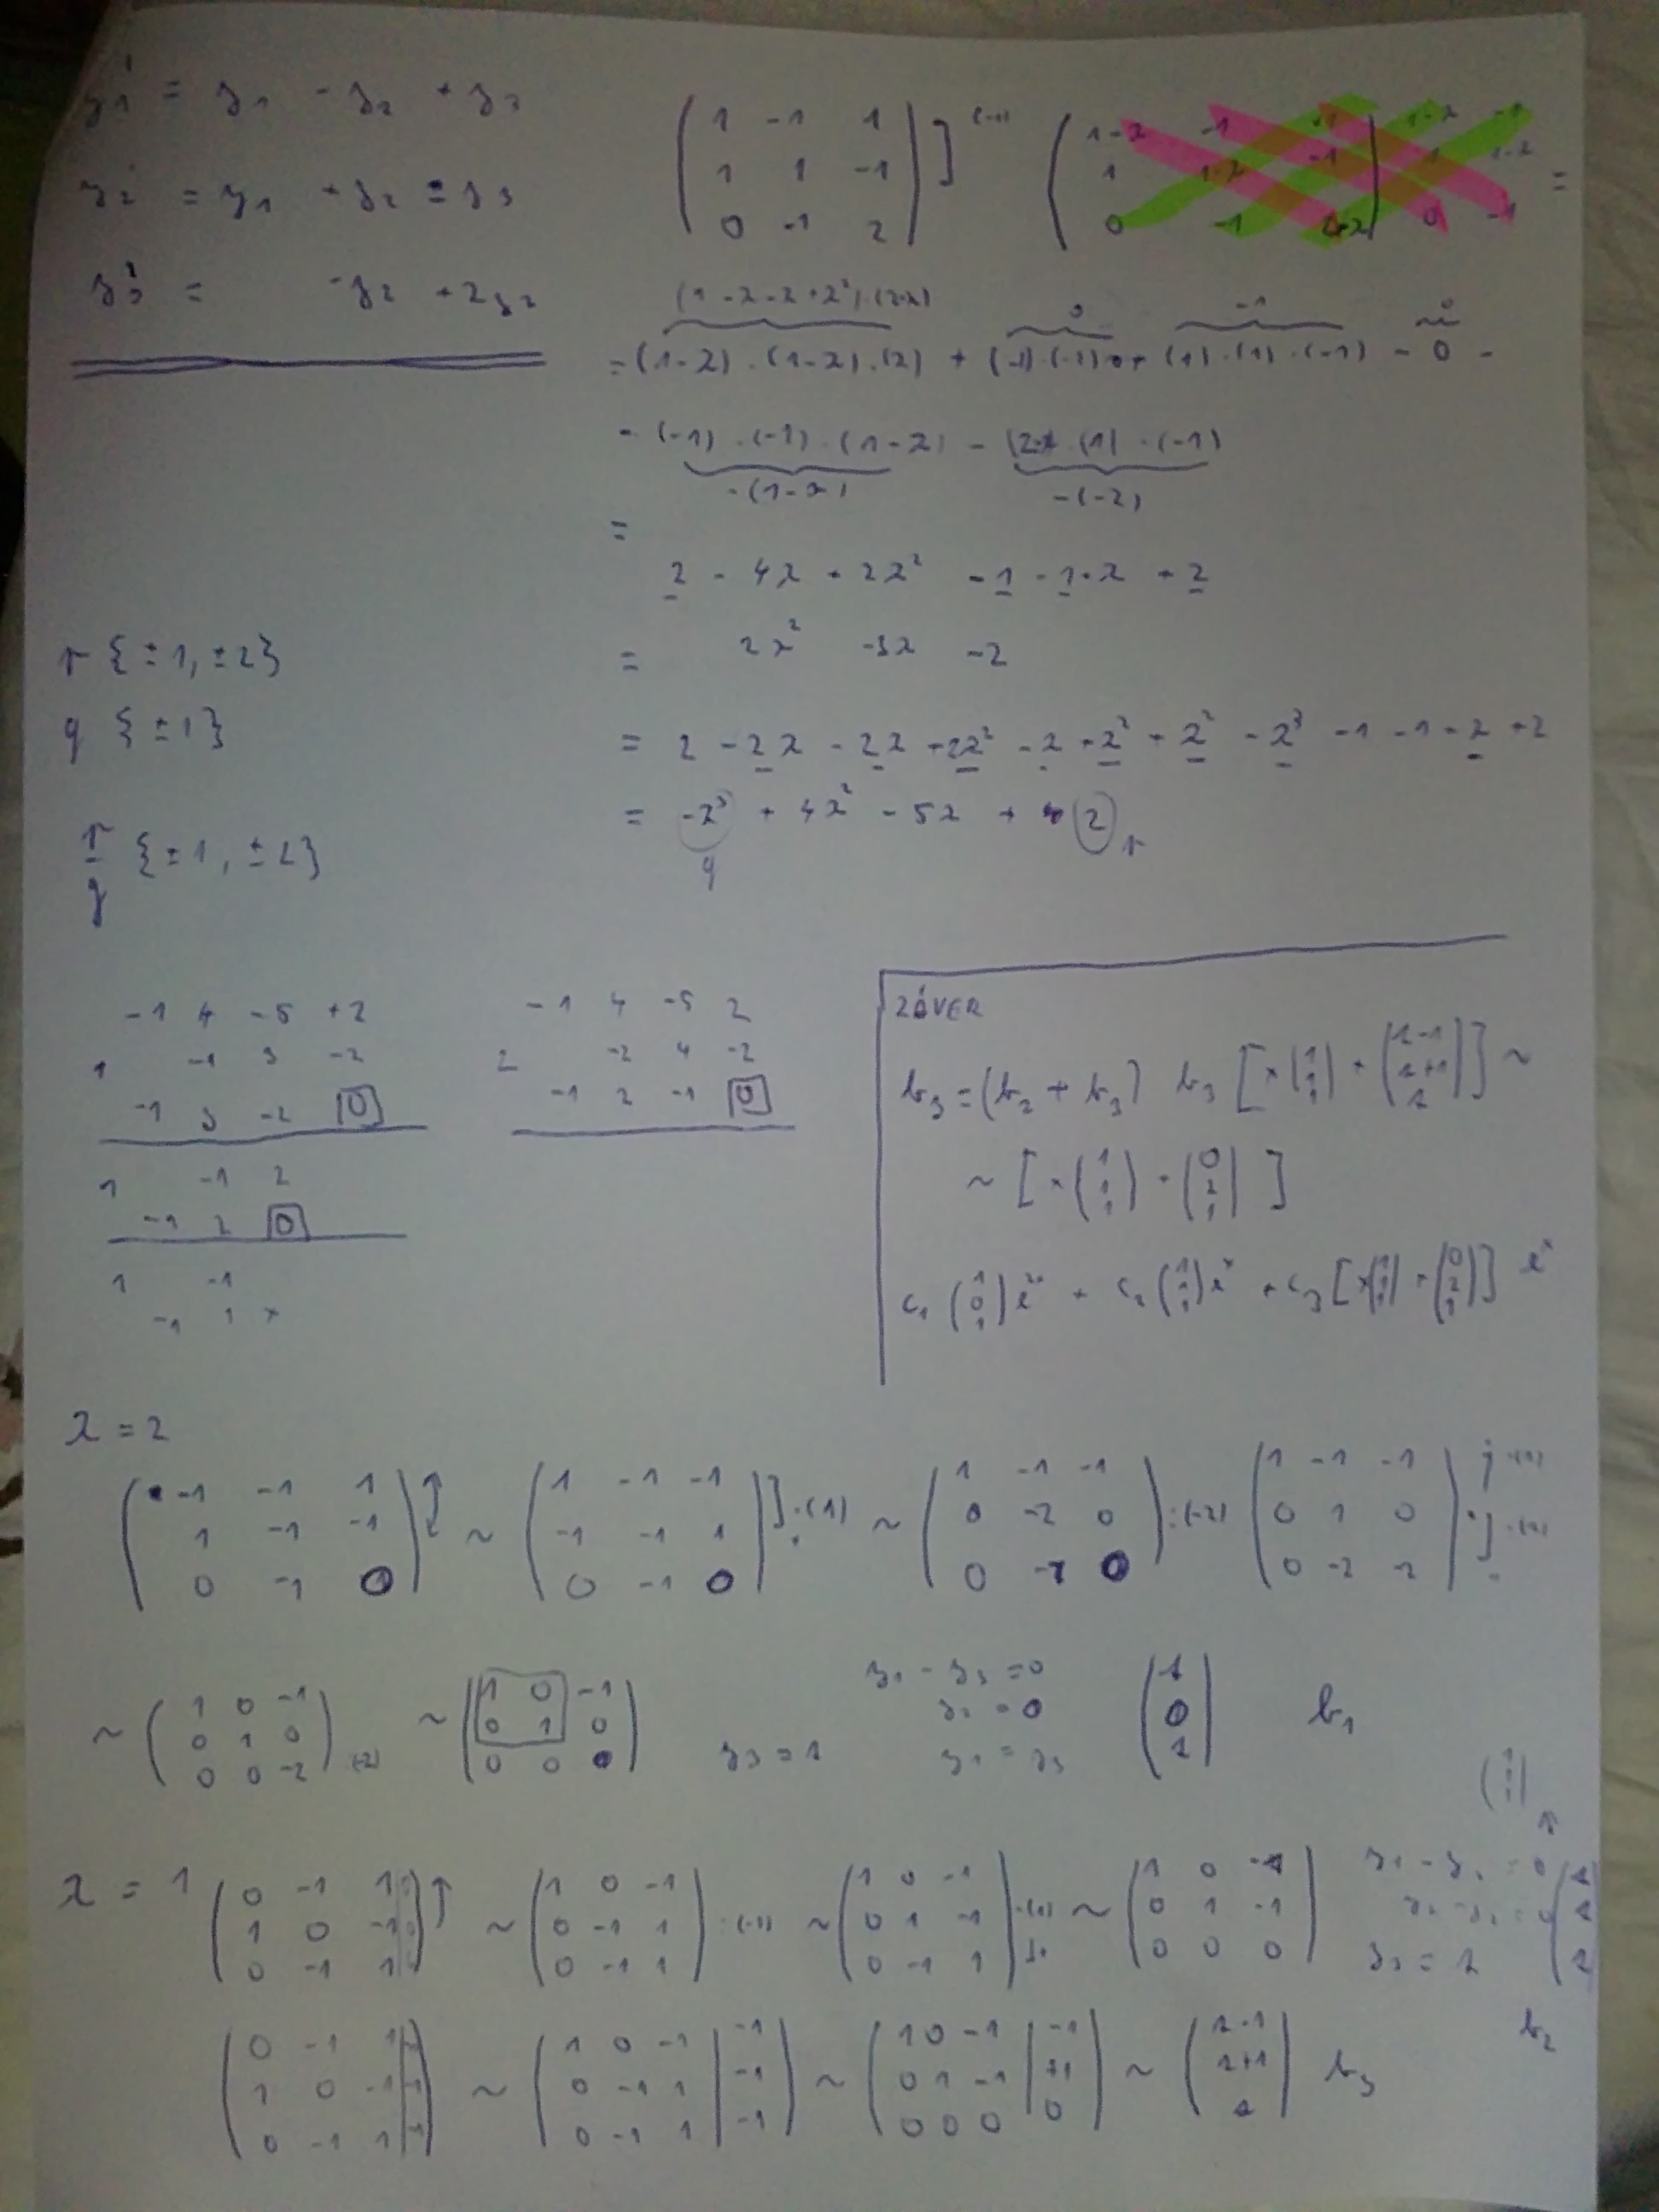 y₁' = y₁ - y₂ + y₃
y₂' = y₁ + y₂ - y₃
y₃' = -y₂ + 2y₃
( 1 -1 1
1 1 -1
0 -1 2 ) ] (-1)
( 1-λ -1 +1 | 1-λ -1
1 1-λ -1 | 1 1-λ
0 -1 2-λ | 0 -1 =
(1-λ-λ+λ²)·(2-λ) 0 -1 0
= (1-λ)·(1-λ)·(2) + (-1)·(-1)·0 + (1)·(1)·(-1) - 0 -
- (-1)·(-1)·(1-λ) - (2-λ·(1)·(-1)
-(1-λ) -(-2)
=
2 - 4λ + 2λ² -1 -1+λ +2
= 2λ² -3λ -2
= 2 -2λ -2λ +2λ² -λ +λ² +λ² -λ³ -1 -1 -λ +2
= -λ³ + 4λ² - 5λ + 2 r
q
r {±1, ±2}
q {±1}
r/q {±1, ±2}
-1 4 -5 +2
1 -1 3 -2
-1 3 -2 0
1 -1 2
-1 2 0
1 -1
-1 1 ×
-1 4 -5 2
2 -2 4 -2
-1 2 -1 0
ZÁVER
b₃ = (b₂ + b₃) b₃ [x(1 1 1) + (1-1 1+1 1)] ~
~ [x(1 1 1) + (0 2 1)]
c₁ (1 0 1) e²ˣ + c₂ (1 1 1) eˣ + c₃ [x(1 1 1) + (0 2 1)] eˣ
λ = 2
( -1 -1 1
1 -1 -1
0 -1 0 )
~ ( 1 -1 -1
-1 -1 1
0 -1 0 ) ] ·(1)
~ ( 1 -1 -1
0 -2 0
0 -1 0 ) :(-2)
( 1 -1 -1
0 1 0
0 -2 -2 )
~ ( 1 0 -1
0 1 0
0 0 -2 ) (-2)
~ ( 1 0 -1
0 1 0
0 0 0 )
y₃ = 1
y₁ - y₃ = 0
y₂ = 0
y₁ = y₃
( 1
0
1 ) b₁
( 1 1 1 )
λ = 1
( 0 -1 1 0
1 0 -1 0
0 -1 1 0 )
~ ( 1 0 -1
0 -1 1
0 -1 1 ) :(-1)
~ ( 1 0 -1
0 1 -1
0 -1 1 ) ·(1)
~ ( 1 0 -1
0 1 -1
0 0 0 )
y₁ - y₃ = 0
y₂ - y₃ = 0
y₃ = 1
( 1
1
1 )
b₂
( 0 -1 1 1
1 0 -1 -1
0 -1 1 -1 )
~ ( 1 0 -1 | -1
0 -1 1 | -1
0 -1 1 | -1 )
~ ( 1 0 -1 | -1
0 1 -1 | +1
0 0 0 | 0 )
~ ( 1-1
1+1
1 ) b₃